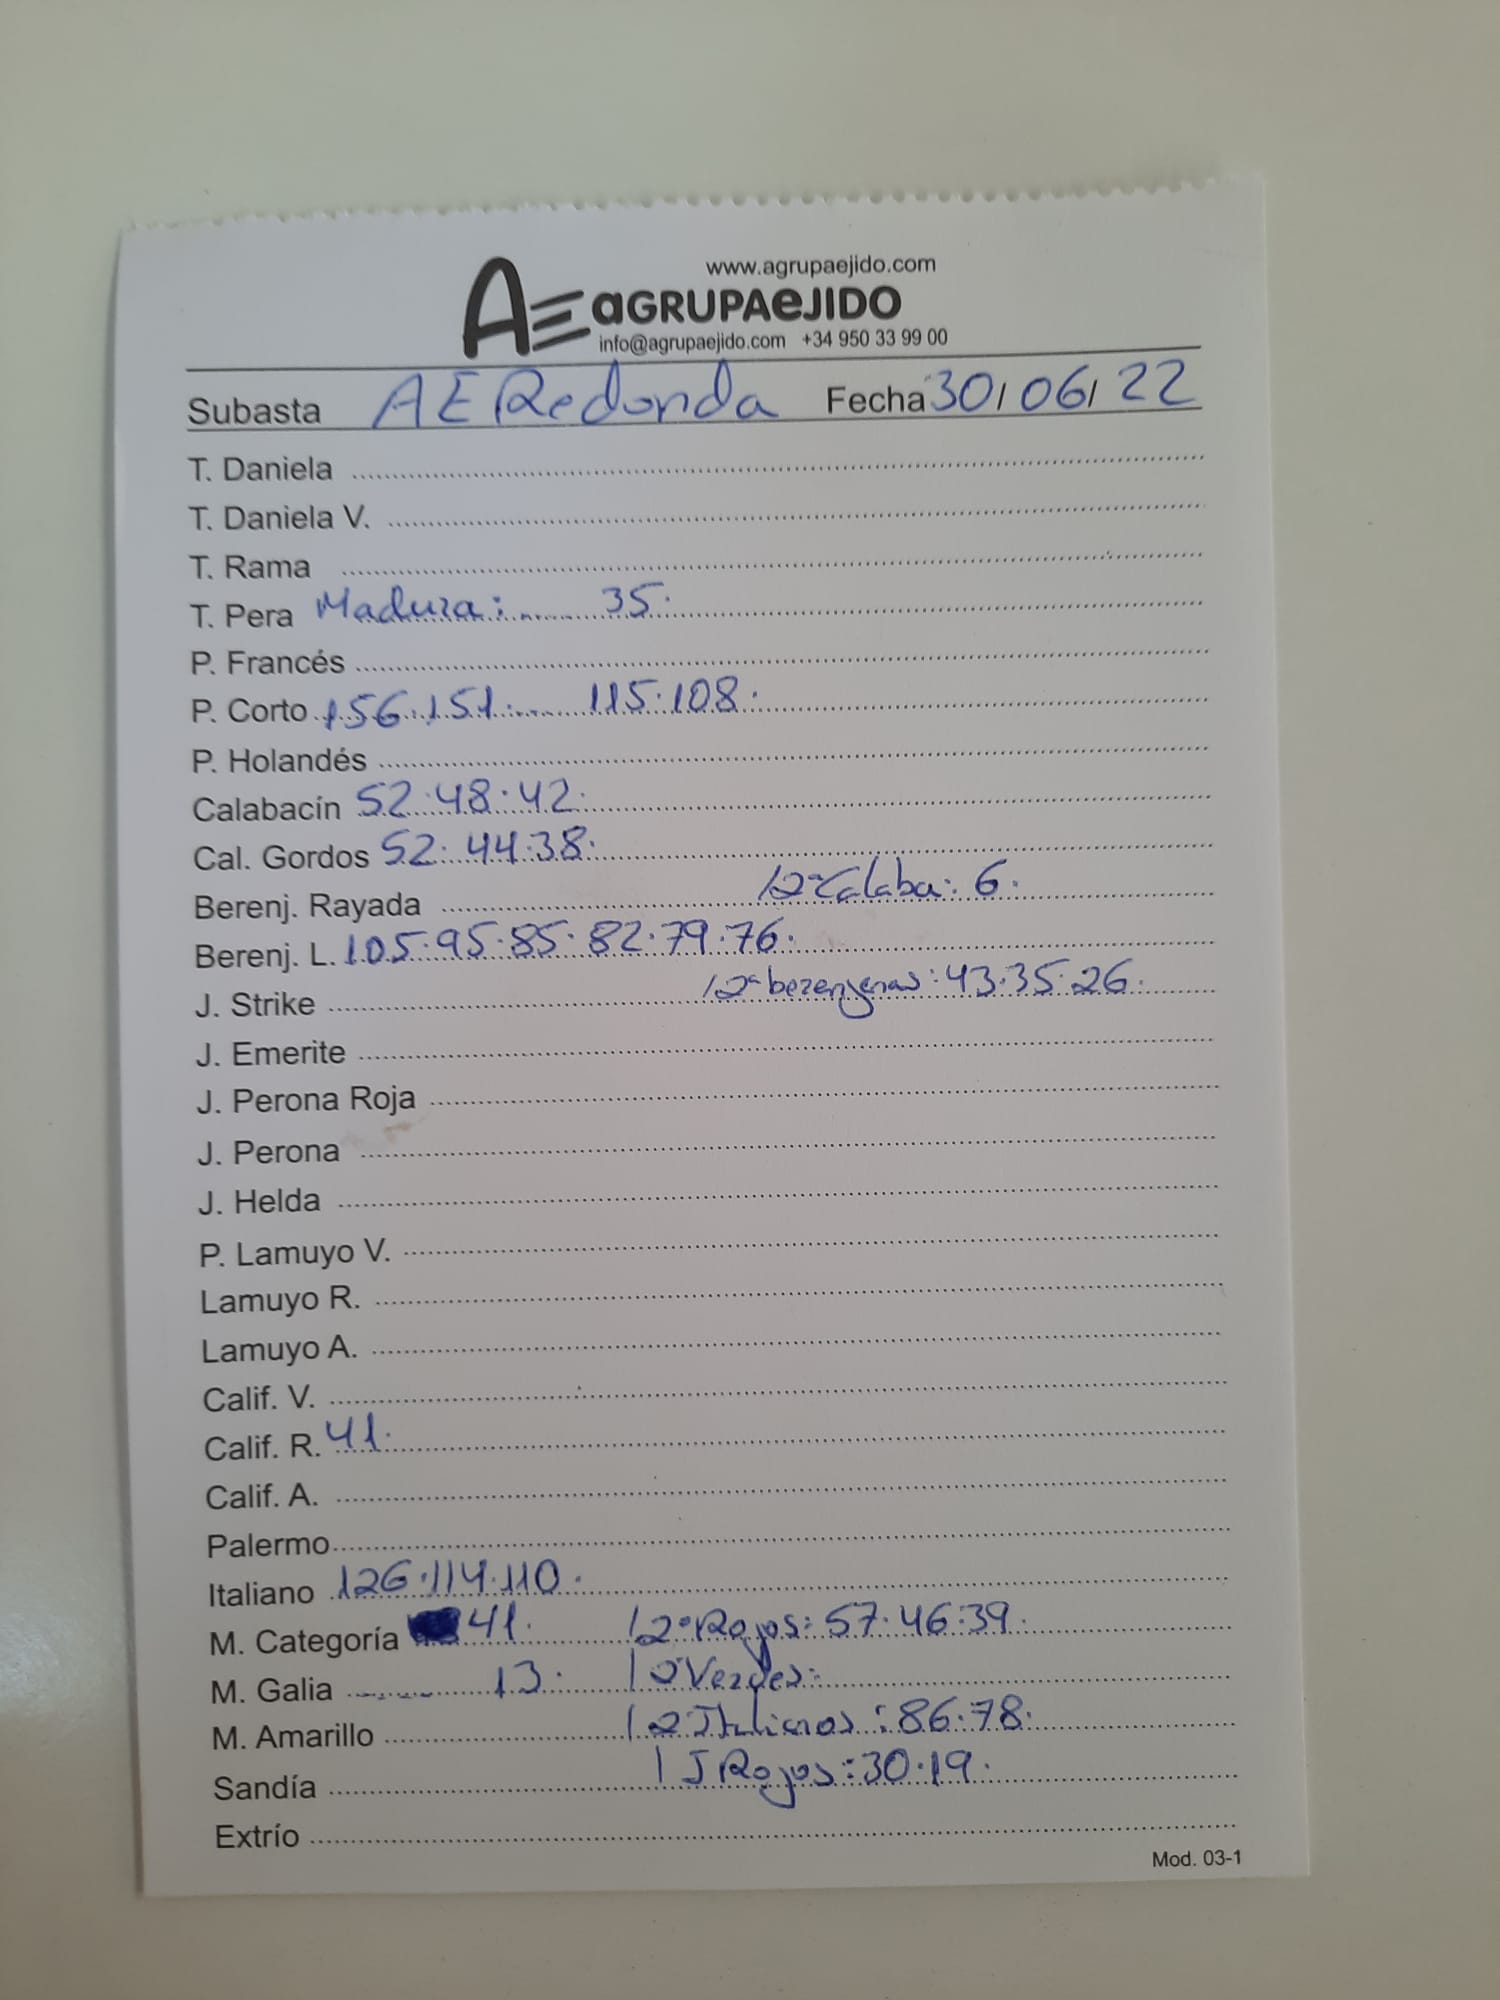 www.agrupaejido.com
AE aGRUPAeJIDO
info@agrupaejido.com +34 950 33 99 00
Subasta AE Redonda Fecha 30/06/22
T. Daniela
T. Daniela V.
T. Rama
T. Pera Madura: 35.
P. Francés
P. Corto 156.151. 115.108.
P. Holandés
Calabacín 52.48.42.
Cal. Gordos 52.44.38.
Berenj. Rayada /2ª Calaba: 6.
Berenj. L. 105.95.85.82.79.76.
J. Strike /2ª berenjenas: 43.35.26.
J. Emerite
J. Perona Roja
J. Perona
J. Helda
P. Lamuyo V.
Lamuyo R.
Lamuyo A.
Calif. V.
Calif. R. 41.
Calif. A.
Palermo
Italiano 126.114.110.
M. Categoría 41. /2º Rojos: 57.46.39.
M. Galia 13. / Verdes:
M. Amarillo /2 Italianos: 86.78.
Sandía / J Rojos: 30.19.
Extrío
Mod. 03-1